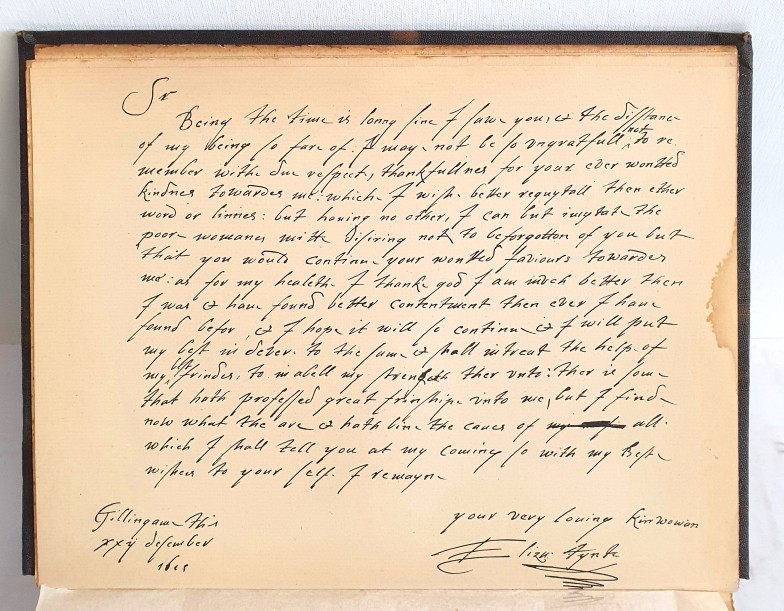 Sr
Being the time is long sine I sawe you, & the disstance
of my being so fare of. I may not be so ungratfull, not to re
member withe due respect, thankfullnes for your ever wontted
kindnes towardes me: which I wish better requytall then ether
word or linnes: but having no other, I can but imytate the
poore womanes mitte disiring not to beforgotton of you but
that you would continue your wontted faviours towardes
me: as for my healthe I thanke god I am much better then
I was & have found better contentment then ever I have
found befor, & I hope it will so continue & I will put
my best in dever. to the same & shall intreat the helpe of
my best frindes, to inabell my strenketh ther unto: ther is some
that hath professed great frinshipe unto me, but I finde
now what the are & hath bine the caues of all.
which I shall tell you at my coming so with my Best
wishes to your selfe I remayne
your very loving kinwoman
Gillingame this
xxij desember
Eliz: Tynte